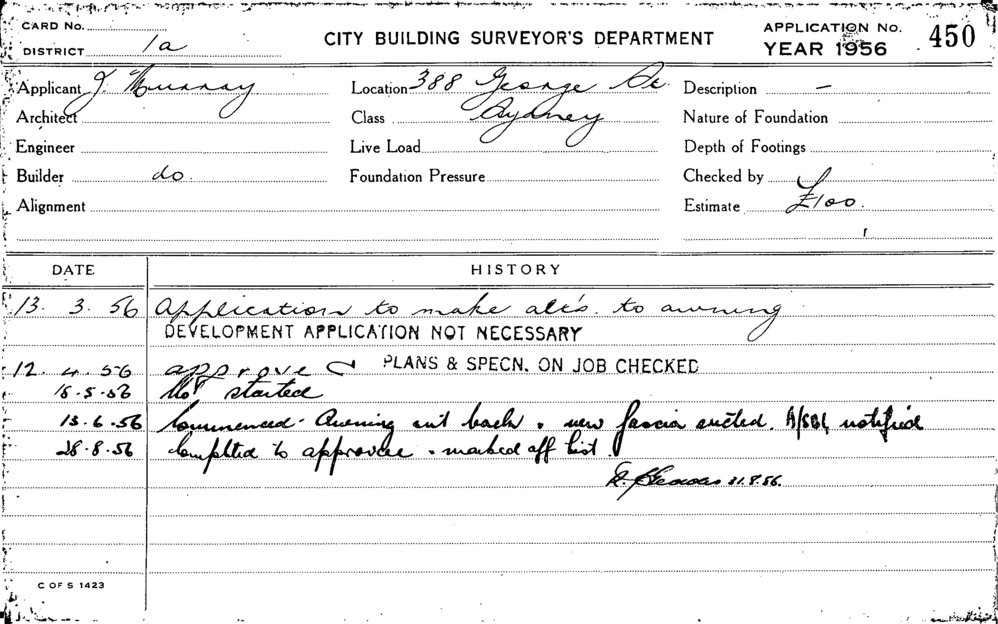 CARD No.
DISTRICT 1a
CITY BUILDING SURVEYOR'S DEPARTMENT
APPLICATION No. 450
YEAR 1956
Applicant J. Murray Location 388 George St. Description –
Architect Class Sydney Nature of Foundation
Engineer Live Load Depth of Footings
Builder do. Foundation Pressure Checked by
Alignment Estimate £100.
DATE HISTORY
13. 3. 56 Application to make alt's. to awning
DEVELOPMENT APPLICATION NOT NECESSARY
12. 4. 56 approved PLANS & SPECN. ON JOB CHECKED
15.5.56 Not started
13.6.56 Commenced. Awning cut back & new fascia erected. notified
28.8.56 Completed to approval & marked off list
31.8.56.
C OF S 1423